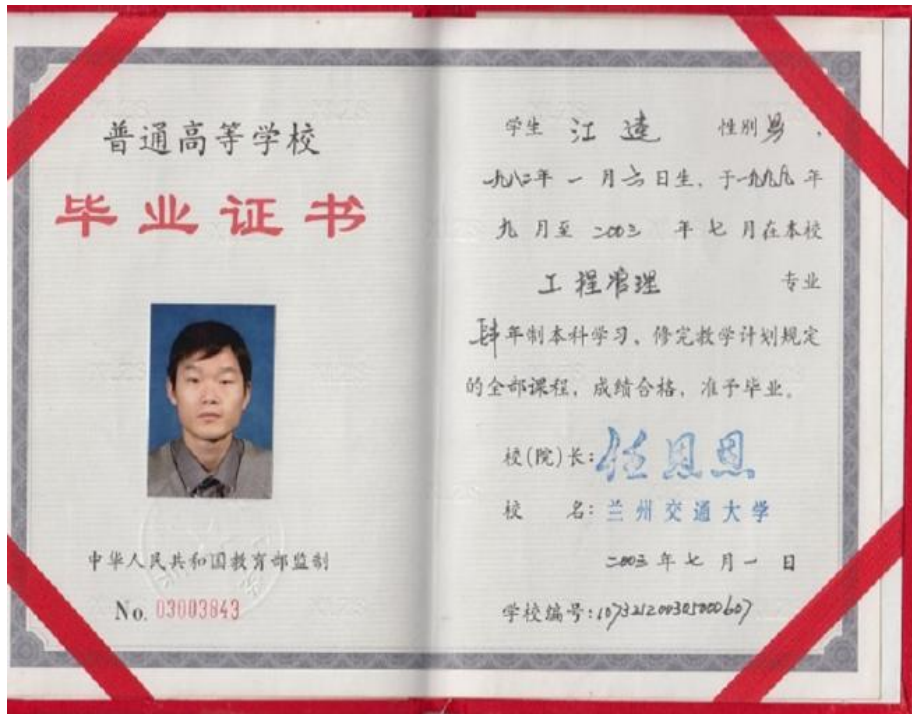 普通高等学校
毕业证书
中华人民共和国教育部监制
No. 03003843
学生 江逵 性别 男，
一九八二年一月六日生，于一九九九年
九月至二00三年七月在本校
工程管理 专业
肆年制本科学习，修完教学计划规定
的全部课程，成绩合格，准予毕业。
校(院)长：任恩恩
校 名：兰州交通大学
二00三年七月一日
学校编号：107321200305000607